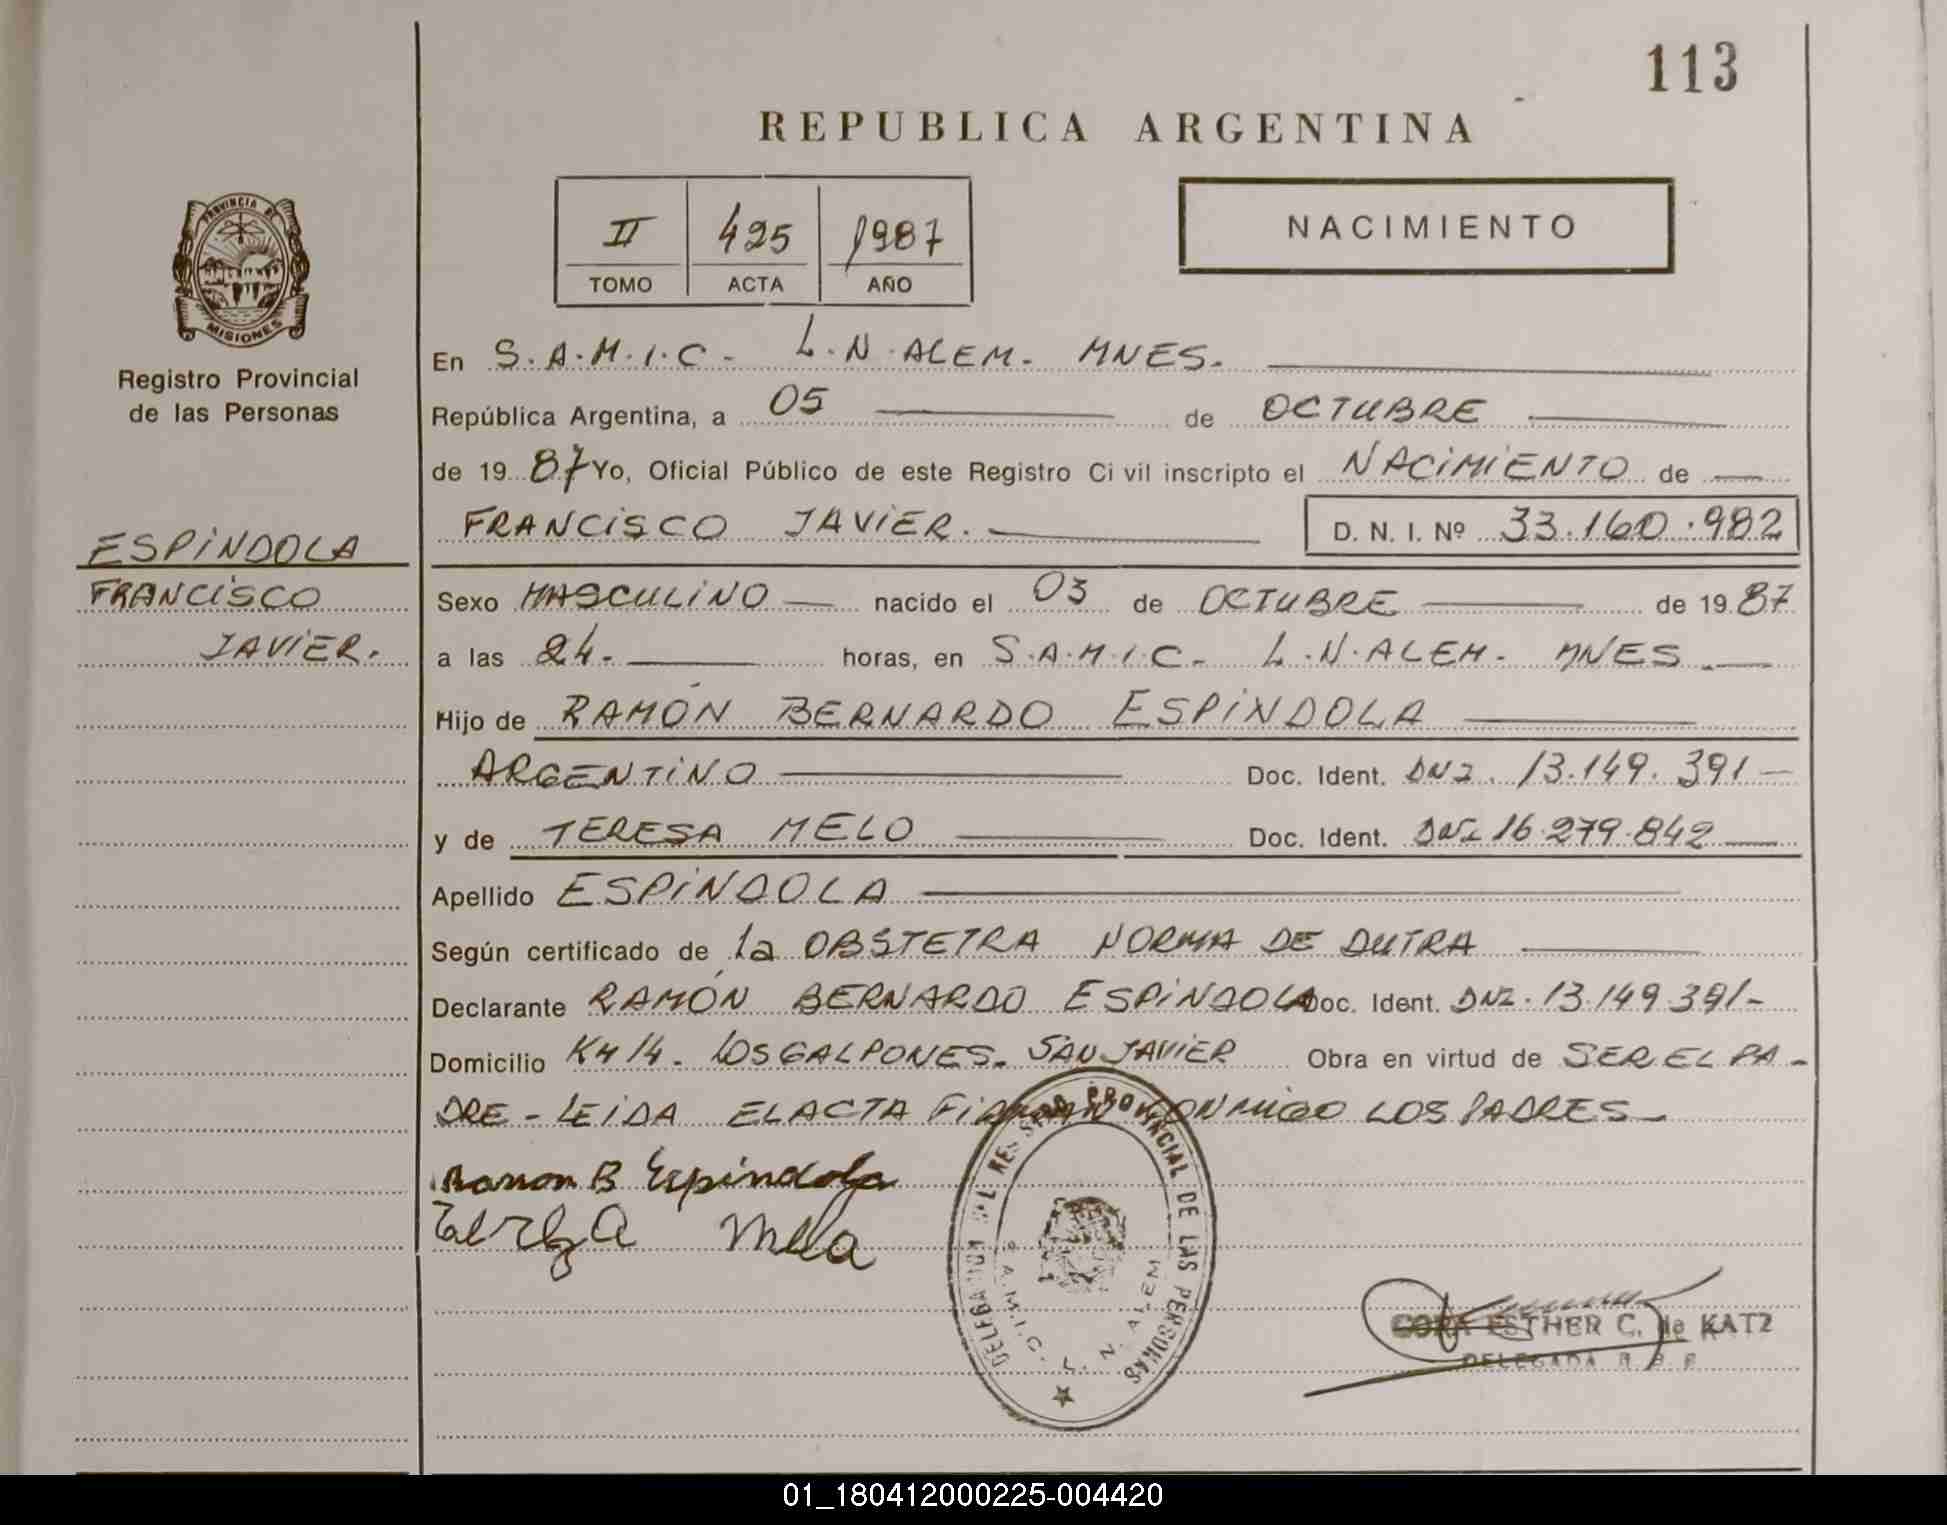 113
REPUBLICA ARGENTINA
II 425 1987
TOMO ACTA AÑO
NACIMIENTO
PROVINCIA DE
MISIONES
Registro Provincial
de las Personas
ESPINDOLA
FRANCISCO
JAVIER.
En S.A.M.I.C. L.N. ALEM. MNES.
República Argentina, a 05 de OCTUBRE
de 19 87 Yo, Oficial Público de este Registro Civil inscripto el NACIMIENTO de
FRANCISCO JAVIER. D. N. I. Nº 33.160.982
Sexo MASCULINO nacido el 03 de OCTUBRE de 19 87
a las 24. horas, en S.A.M.I.C. L.N. ALEM. MNES.
Hijo de RAMÓN BERNARDO ESPINDOLA
ARGENTINO Doc. Ident. DNI. 13.149.391
y de TERESA MELO Doc. Ident. DNI 16.279.842
Apellido ESPINDOLA
Según certificado de la OBSTETRA NORMA DE DUTRA
Declarante RAMÓN BERNARDO ESPINDOLA Doc. Ident. DNI. 13.149.391-
Domicilio KM 14. LOS GALPONES. SAN JAVIER Obra en virtud de SER EL PA-
DRE - LEIDA EL ACTA FIRMAN CONMIGO LOS PADRES
Ramon B Espindola
DELEGACION DEL REGISTRO PROVINCIAL DE LAS PERSONAS
S.A.M.I.C. L. N. ALEM
CORA ESTHER C. de KATZ
DELEGADA
01_180412000225-004420